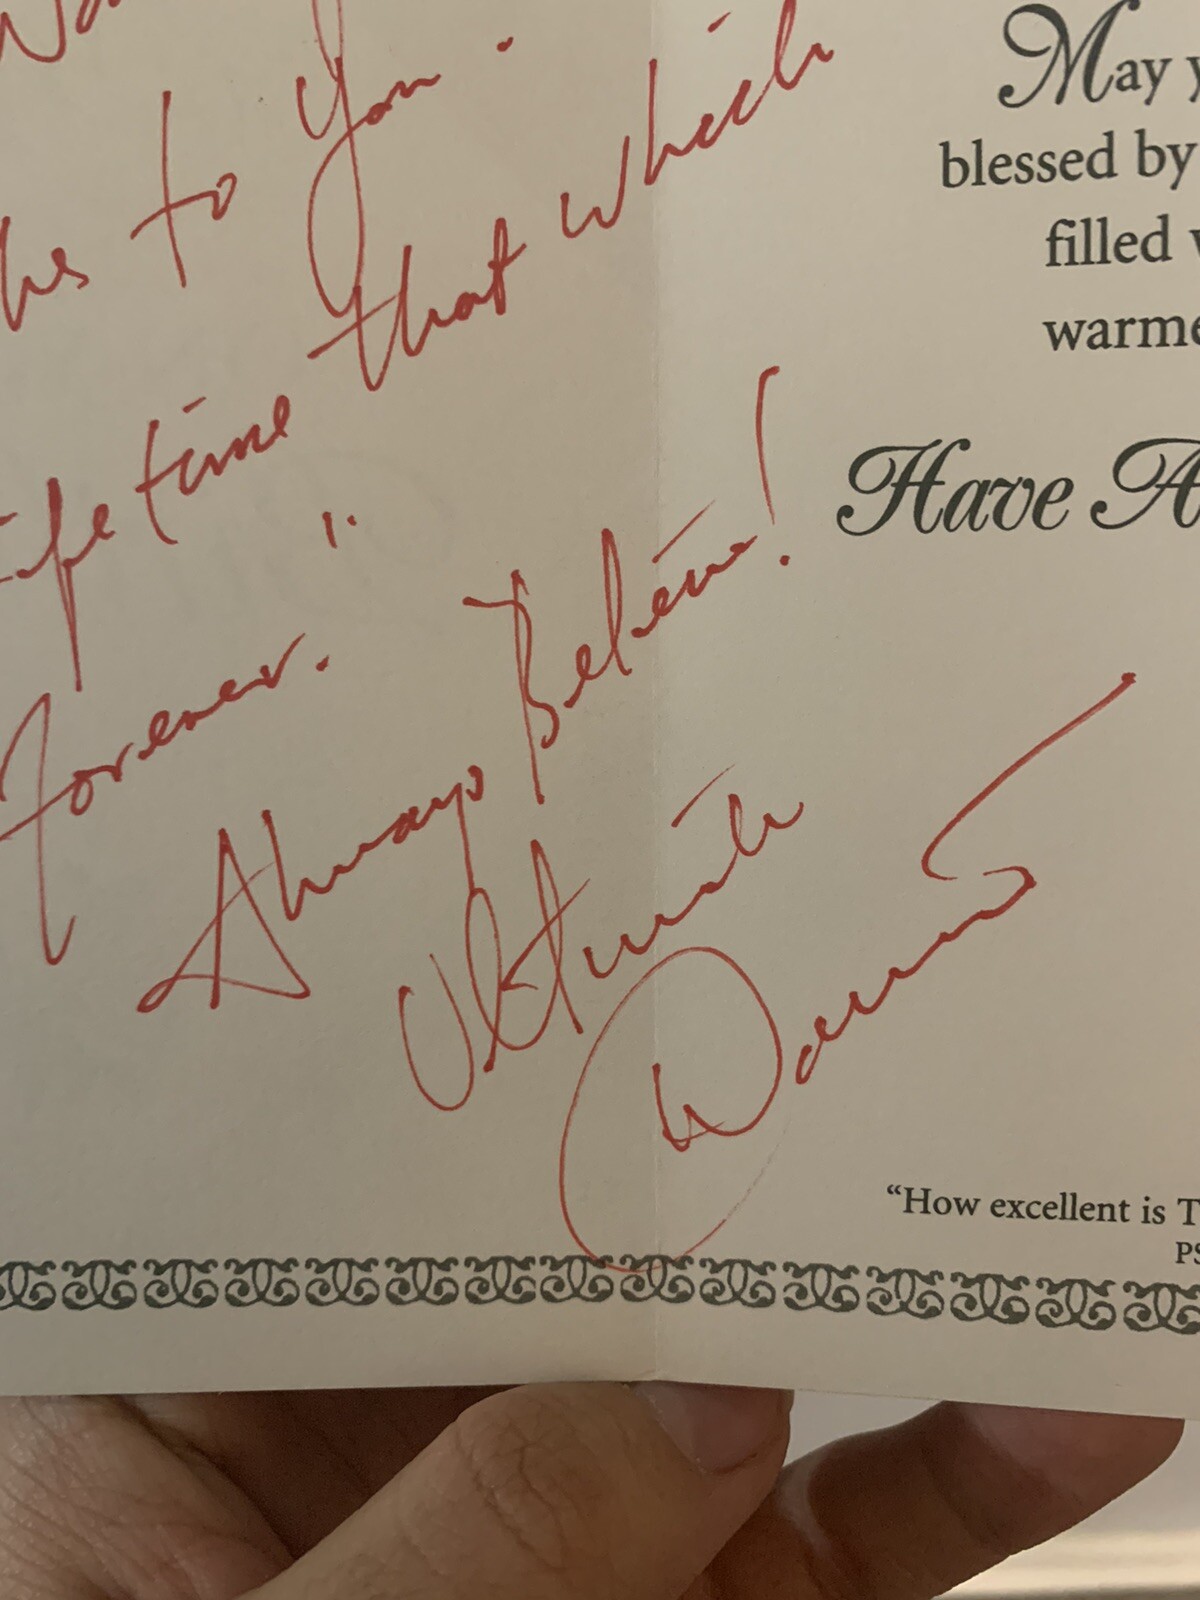 to you.
Lifetime that which
forever."
Always Believe!
Ultimate
May y
blessed by
filled
warme
Have A
"How excellent is T
PS